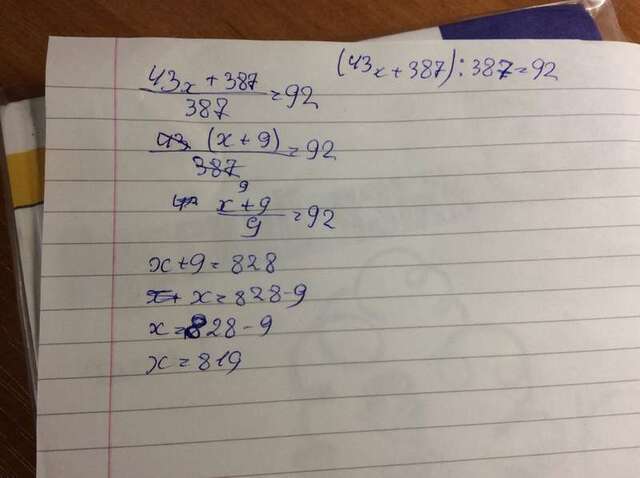 (43x+387):387=92
43x+387/387=92
43(x+9)/387=92
9
x+9/9=92
x+9=828
x=828-9
x=828-9
x=819